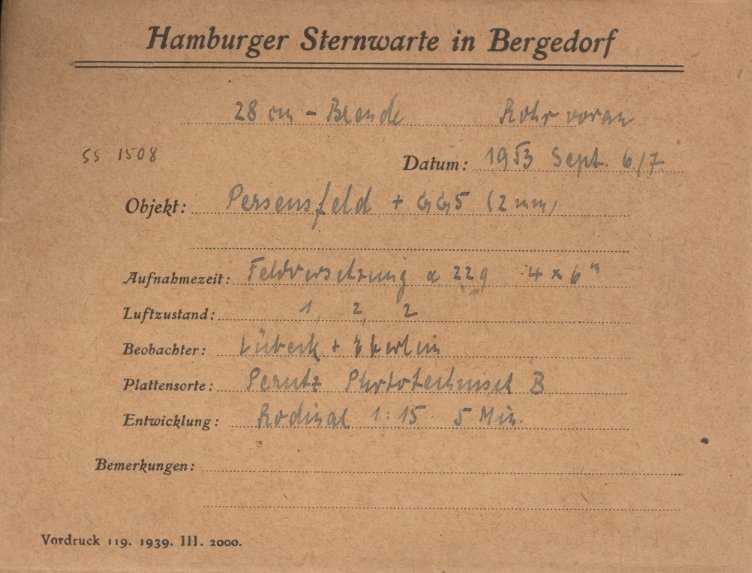 Hamburger Sternwarte in Bergedorf
28 cm - Blende Rohr voran
SS 1508
Datum: 1953 Sept. 6/7
Objekt: Perseusfeld + GG5 (2mm)
Aufnahmezeit: Feldversetzung α 229 4 × 6ᵐ
Luftzustand: 1, 2, 2
Beobachter: Lübeck +
Plattensorte: Perutz Phototechnisch B
Entwicklung: Rodinal 1:15 5 Min.
Bemerkungen:
Vordruck 119. 1939. III. 2000.